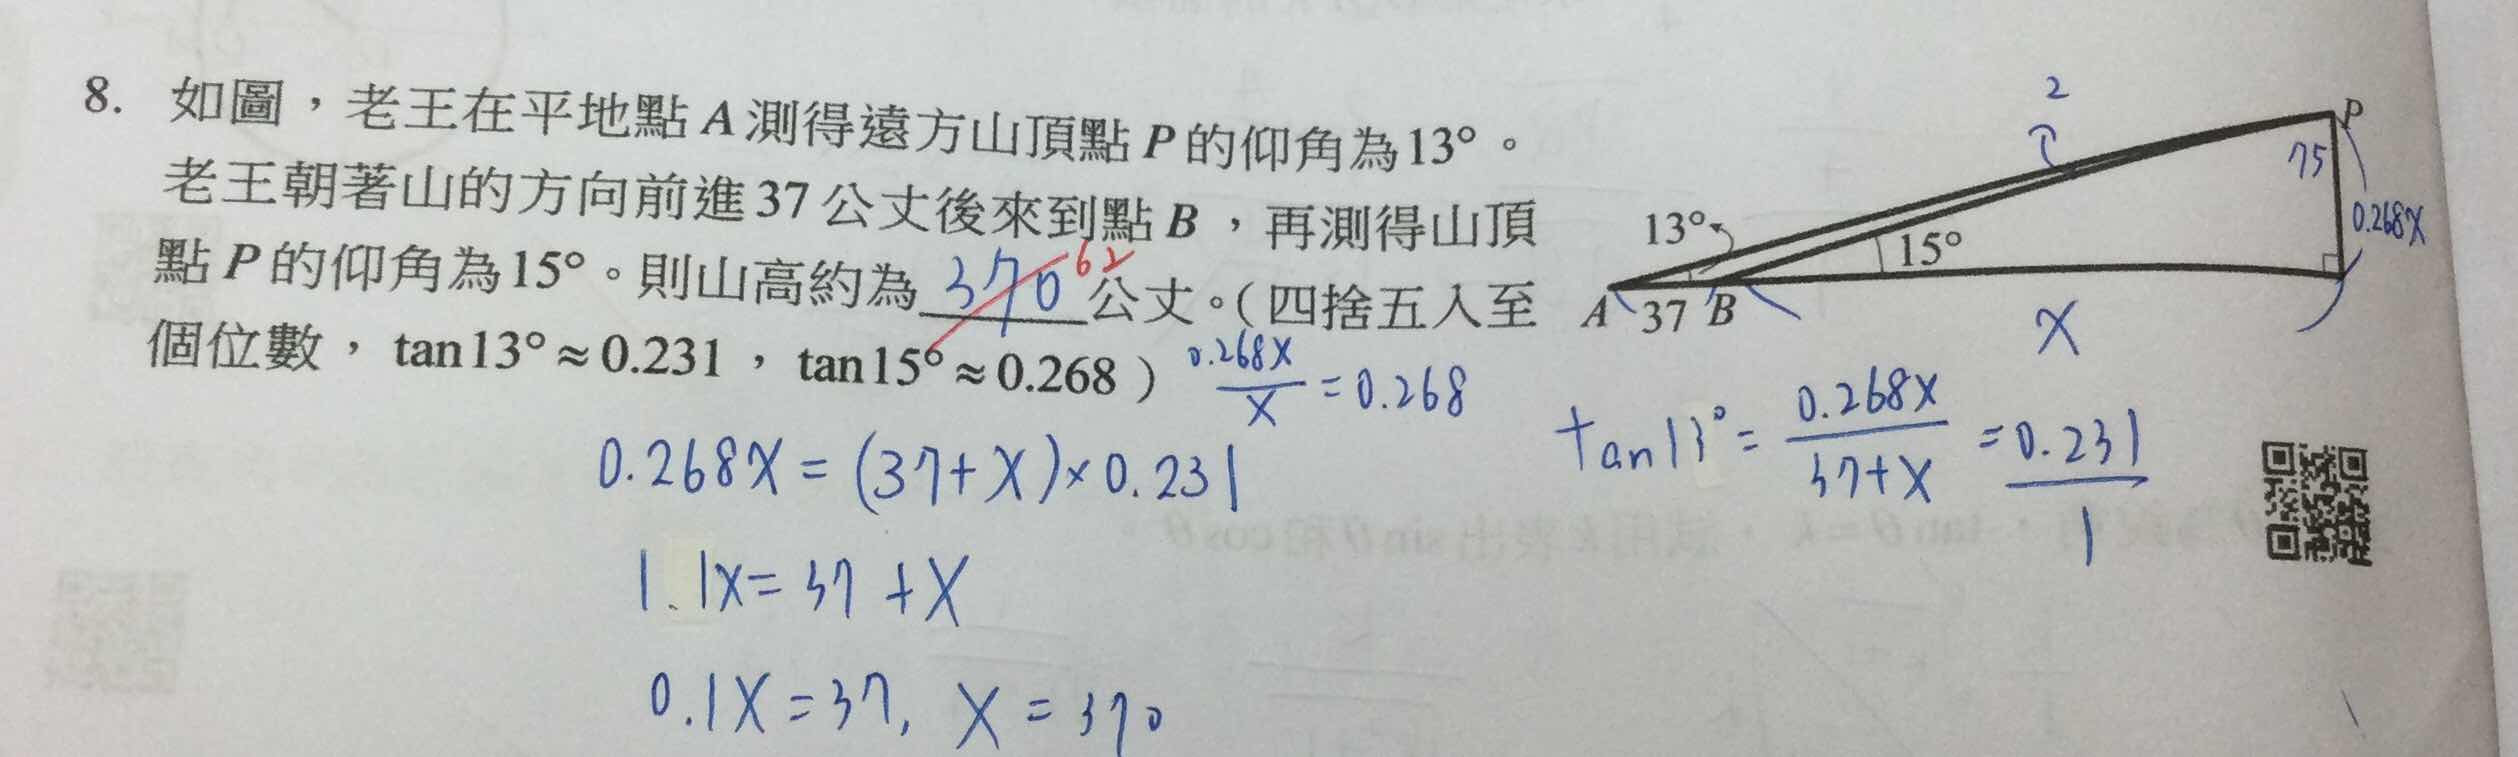 8. 如圖，老王在平地點A測得遠方山頂點P的仰角為13°。
老王朝著山的方向前進37公丈後來到點B，再測得山頂
點P的仰角為15°。則山高約為370 62公丈。（四捨五入至
個位數，tan13°≈0.231，tan15°≈0.268）
0.268X/X=0.268
0.268X=(37+X)×0.231
1.1X=37+X
0.1X=37, X=370
2
P
75
0.268X
13°
15°
A 37 B
X
tan13°=0.268X/37+X=0.231/1